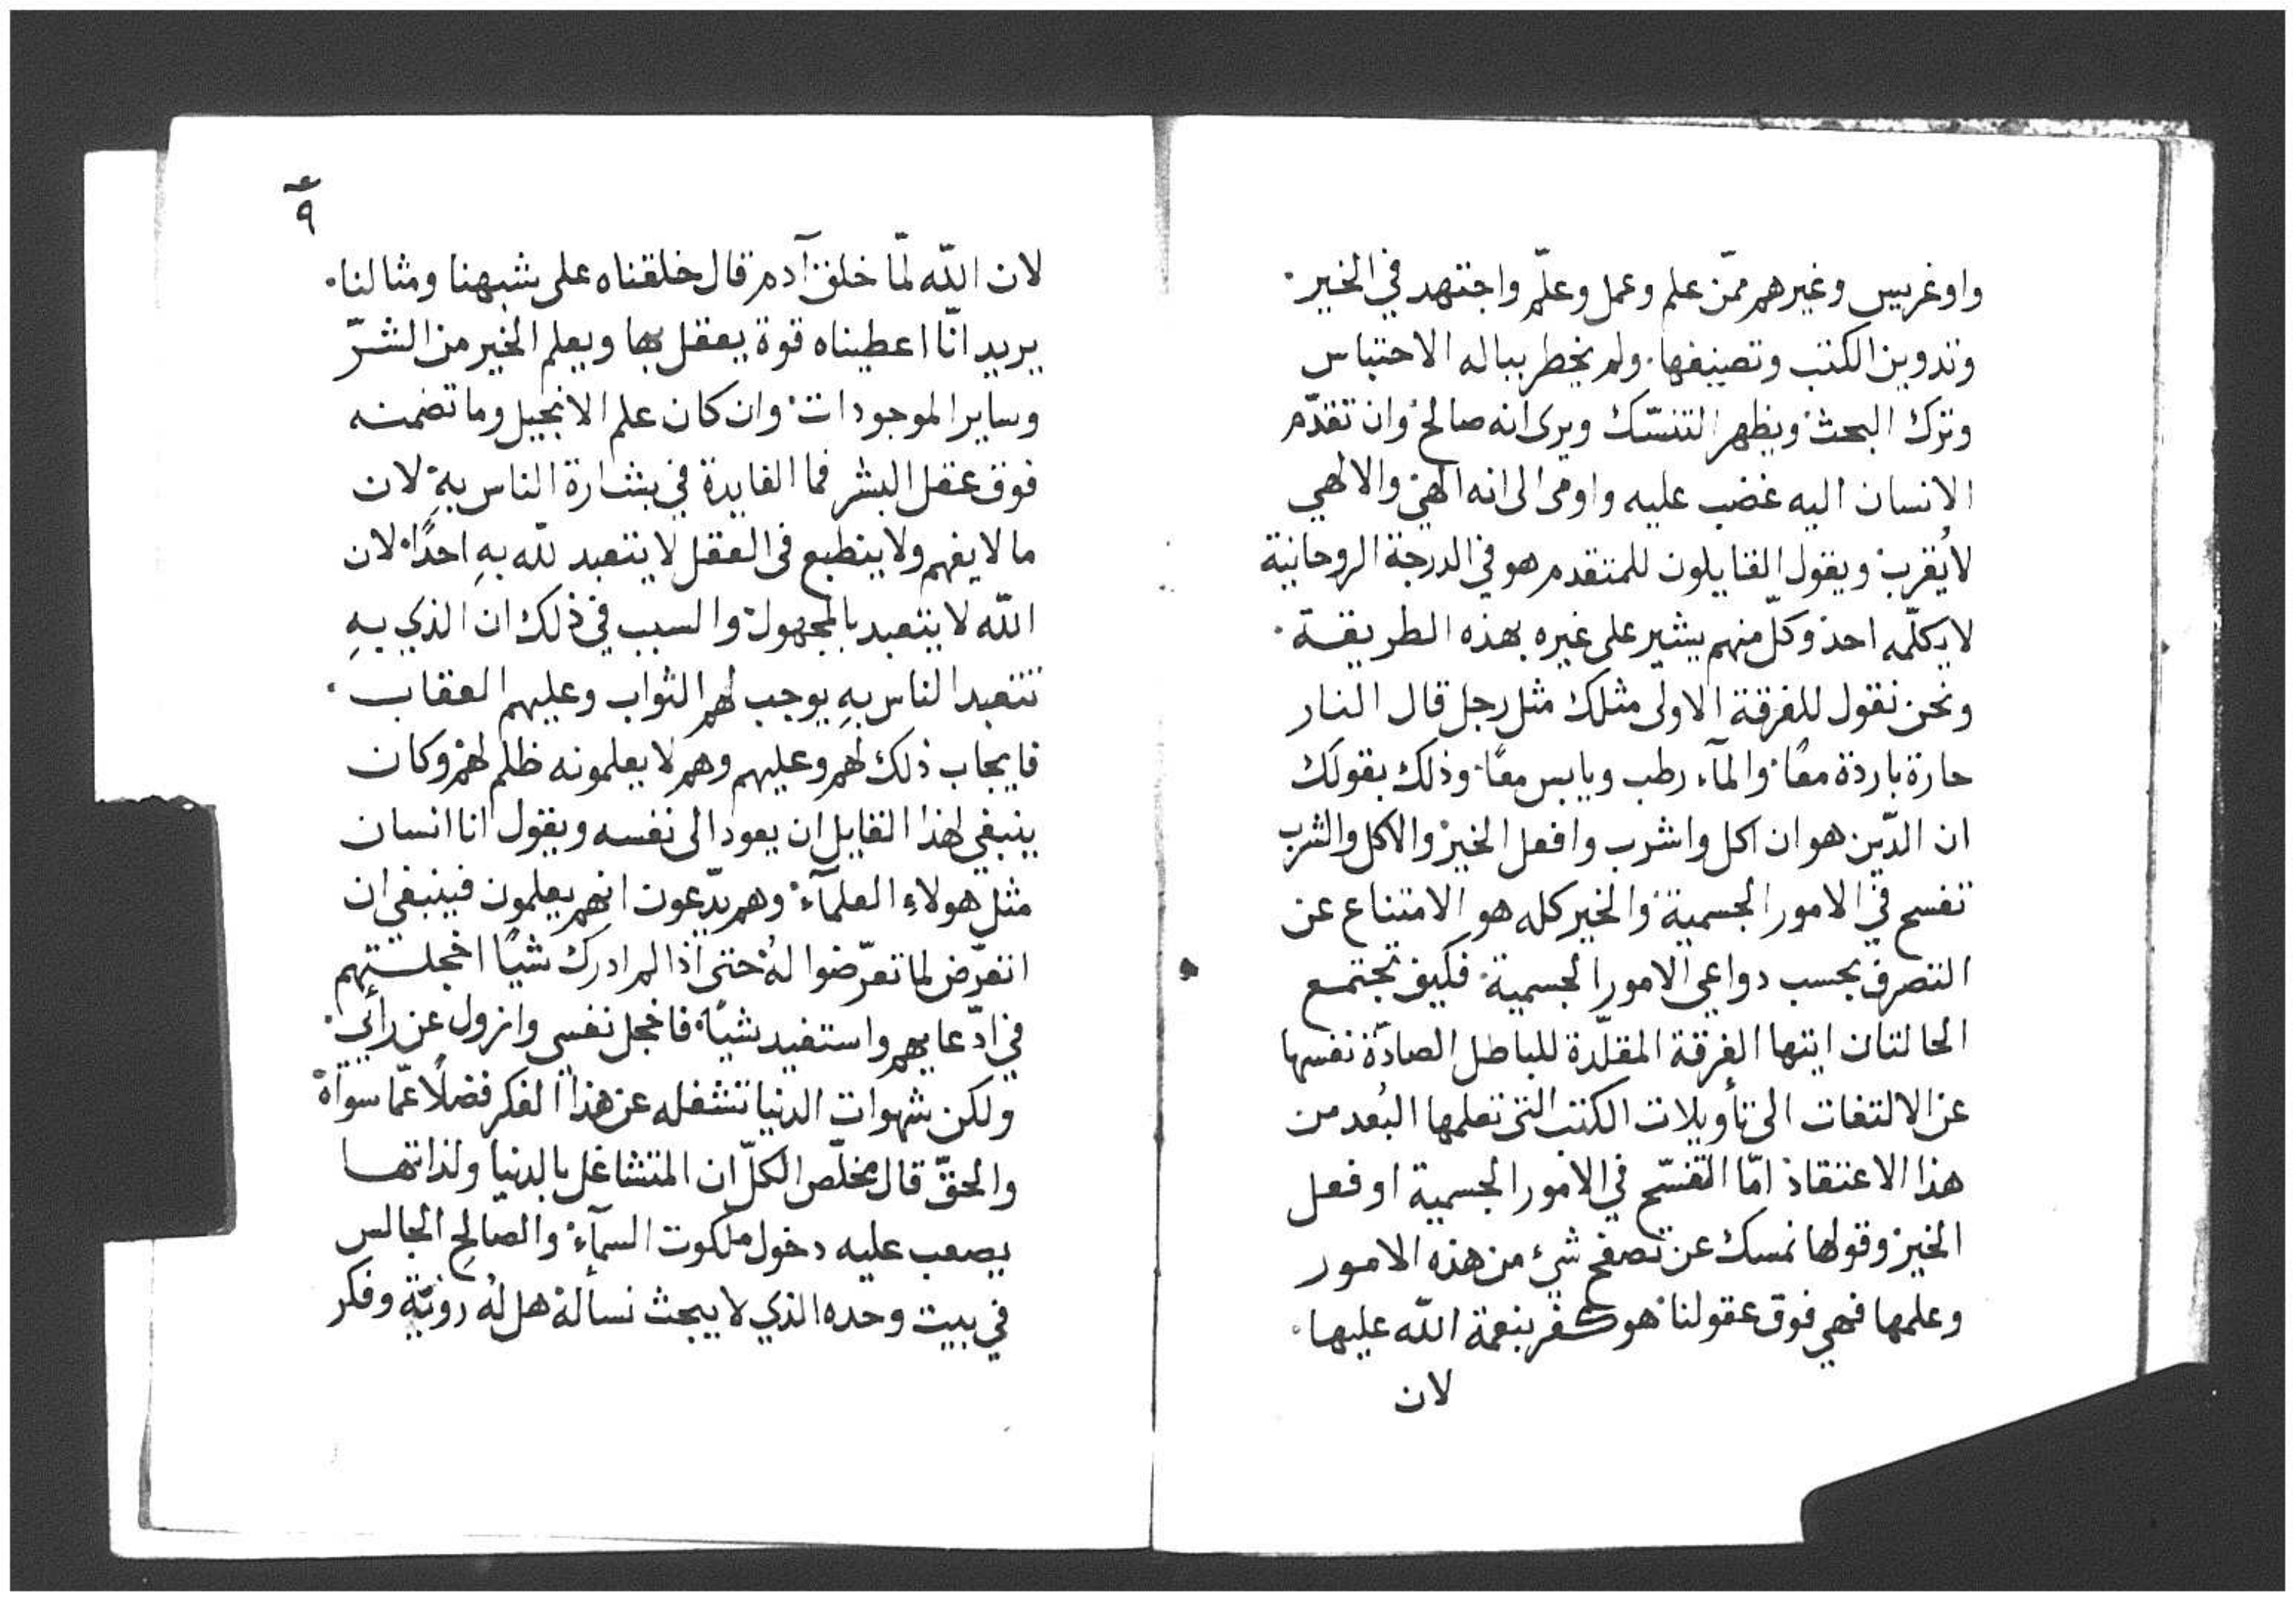 واوغريس وغيرهم ممّن علم وعمل وعلّم واجتهد في الخير.
وتدوين الكتب وتصنيفها. ولم يخطر بباله الاحتباس
وترك البحث. ويظهر التنسّك ويرى انه صالح. وان تقدّم
الانسان اليه غضب عليه واومى الى انه الهي. والالهي
لا يُقرب. ويقول القايلون للمتقدم هو في الدرجة الروحانية
لا يكلّمه احد. وكلّ منهم يشير على غيره بهذه الطريقة.
ونحن نقول للفرقة الاولى مثلك مثل رجل قال النار
حارة باردة معًا. والمآء رطب ويابس معًا. وذلك بقولك
ان الدّين هو ان اكل واشرب وافعل الخير. والاكل والشرب
تفسح في الامور الجسمية. والخير كله هو الامتناع عن
التصرف بحسب دواعي الامور الجسمية. فكيف تجتمع
الحالتان ايتها الفرقة المقلّدة للباطل الصادّة نفسها
عن الالتفات الى تأويلات الكتب التى تعلمها البُعد من
هذا الاعتقاد. امّا التفسّح في الامور الجسمية او فعل
الخير. وقولها نمسك عن تصفح شيء من هذه الامور
وعلمها فهي فوق عقولنا. هو كفر بنعمة اللّه عليها.
لان
٩
لان اللّه لمّا خلق آدم قال خلقناه على شبهنا ومثالنا.
يريد انّا اعطيناه قوة يعقل بها ويعلم الخير من الشرّ
وساير الموجودات. وان كان علم الانجيل وما تضمنه
فوق عقل البشر فما الفايدة في بشارة الناس بهِ. لان
ما لا يفهم ولا ينطبع فى العقل لا يتعبد للّه بهِ احدًا. لان
اللّه لا يتعبد بالمجهول. والسبب في ذلك ان الذي بهِ
تتعبد الناس بهِ يوجب لهم الثواب وعليهم العقاب.
فايجاب ذلك لهم وعليهم وهم لا يعلمونه ظلم لهم. وكان
ينبغي لهذا القايل ان يعود الى نفسه ويقول انا انسان
مثل هولاءِ العلمآء. وهم يدّعون انهم يعلمون فينبغي ان
اتعرّض لما تعرّضوا لهُ. حتى اذا لم ادرك شيًا اخجلتهم
في ادّعايهم واستفيد شيًا. فاخجل نفسي وازول عن رأيي.
ولكن شهوات الدنيا تشغله عن هذا الفكر فضلًا عمّا سواهُ
والحقّ قال مخلّص الكلّ ان المتشاغل بالدنيا ولذاتها
يصعب عليه دخول ملكوت السمآء. والصالح الجالس
في بيت وحده الذي لا يبحث نسألهُ هل لهُ رويّة وفكر